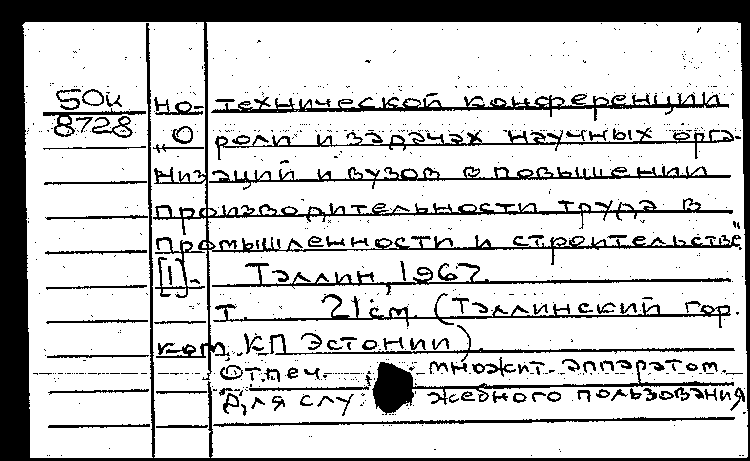 50к
8728
но-технической конференции
„О роли и задачах научных орга-
низаций и вузов в повышении
производительности труда в
промышленности и строительстве"
[1]- Таллин, 1967.
т. 21 см. (Таллинский гор.
ком. КП Эстонии).
Отпеч. множит. аппаратом.
Для служебного пользования